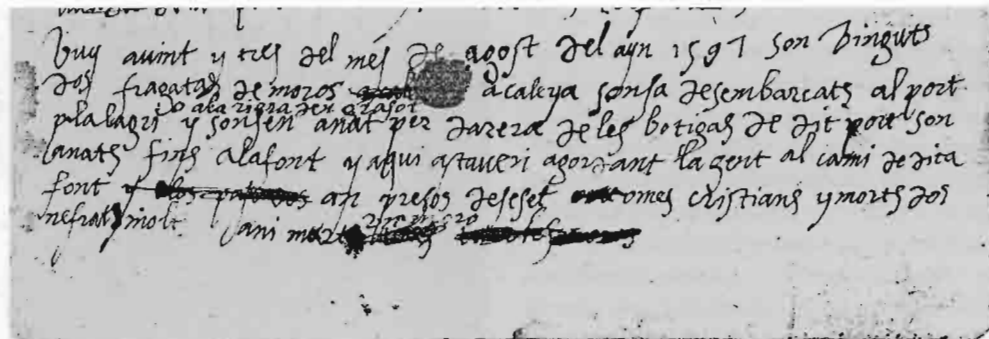 Vuy avint y tres del més de agost del ayn 1597 son Vinguts
dos fragatas de moros a caleya sonsa desembarcats al port
o ala riera den grasot
plalagri y sonsen anat per darera de les botigas de dit port son
anats fins alafont y aqui astaveri agordant la gent al cami de dita
font y an presos deseset omes cristians y morts dos
nefrat y molt ani mort un moro